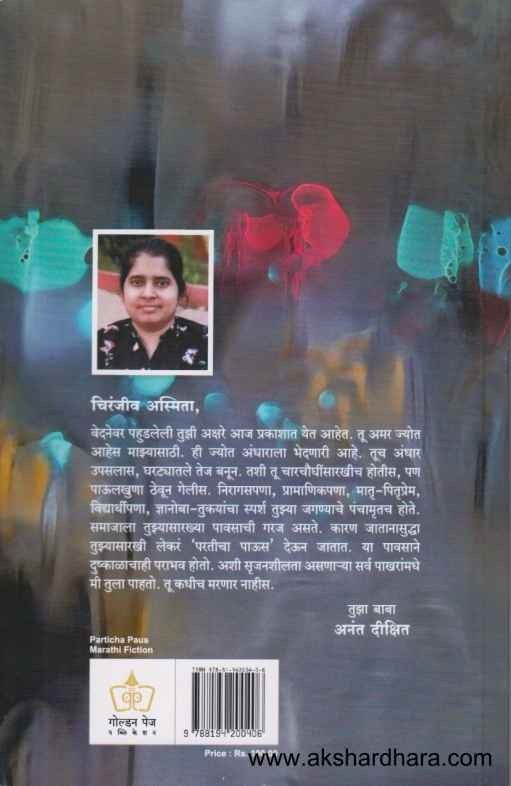 चिरंजीव अस्मिता,
वेदनेवर पहुडलेली तुझी अक्षरे आज प्रकाशात येत आहेत. तू अमर ज्योत
आहेस माझ्यासाठी. ही ज्योत अंधाराला भेदणारी आहे. तूच अंधार
उपसलास, घरट्यातले तेज बनून. तशी तू चारचौघींसारखीच होतीस, पण
पाऊलखुणा ठेवून गेलीस. निरागसपणा, प्रामाणिकपणा, मातृ-पितृप्रेम,
विद्यार्थीपणा, ज्ञानोबा-तुकयांचा स्पर्श तुझ्या जगण्याचे पंचामृतच होते.
समाजाला तुझ्यासारख्या पावसाची गरज असते. कारण जातानासुद्धा
तुझ्यासारखी लेकरं 'परतीचा पाऊस' देऊन जातात. या पावसाने
दुष्काळाचाही पराभव होतो. अशी सृजनशीलता असणाऱ्या सर्व पाखरांमधे
मी तुला पाहतो. तू कधीच मरणार नाहीस.
तुझा बाबा
अनंत दीक्षित
Particha Paus
Marathi Fiction
गोल्डन पेज
पब्लिकेशन
ISBN
9 788194 200406
Price : Rs.
www.akshardhara.com